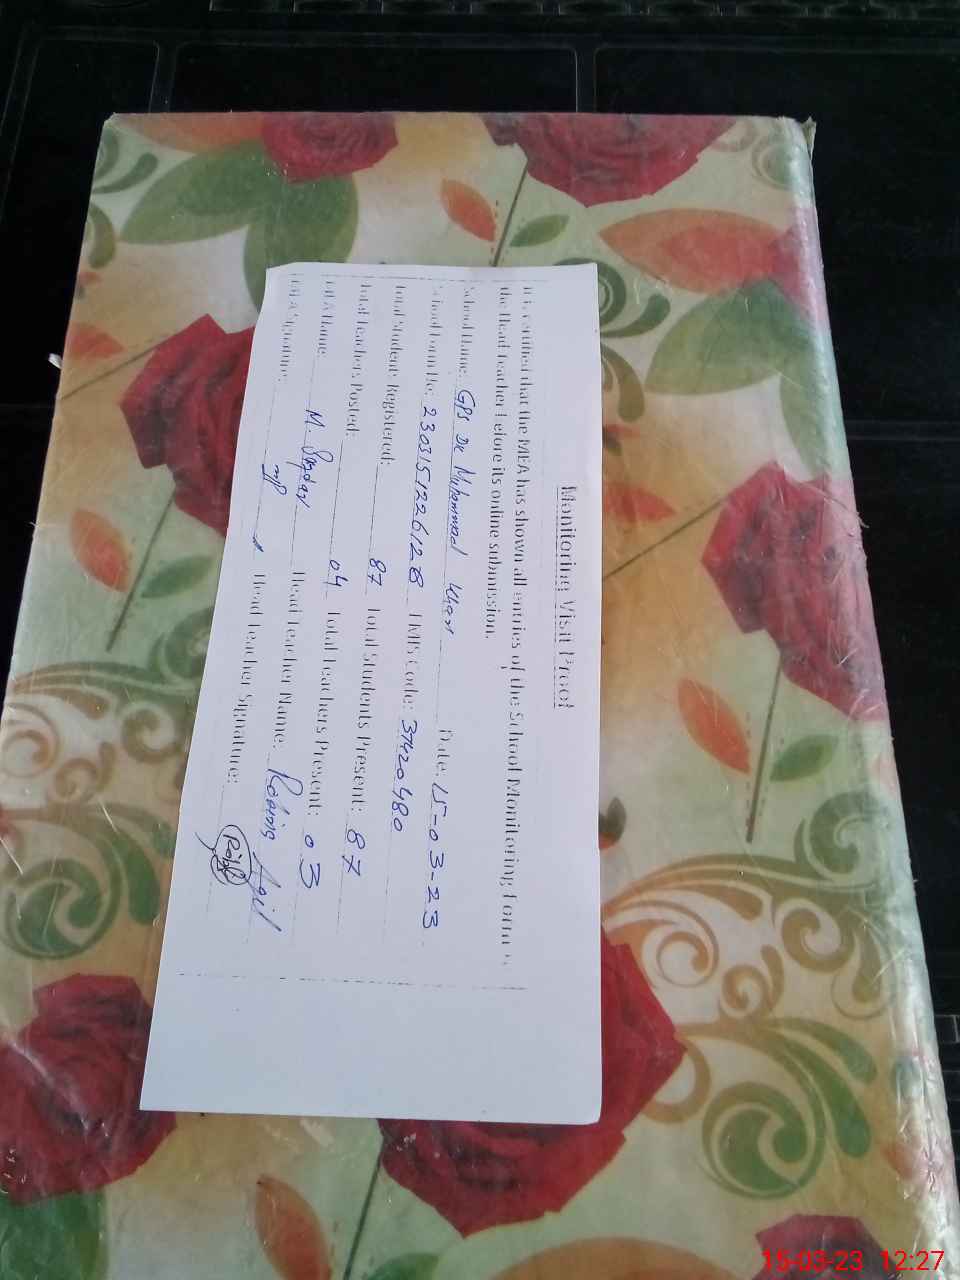 Monitoring Visit Proof
It is certified that the MEA has shown all entries of the School Monitoring Form to
the Head Teacher before its online submission.
School Name: GPS De Muhammad Khan Date: 15-03-23
School Form No: 2303151226128 EMIS Code: 37420480
Total Student Registered: 87 Total Students Present: 87
Total Teachers Posted: 04 Total Teachers Present: 03
MEA Name: M. Head Teacher Name:
MEA Signature: Head Teacher Signature:
15-03-23 12:27